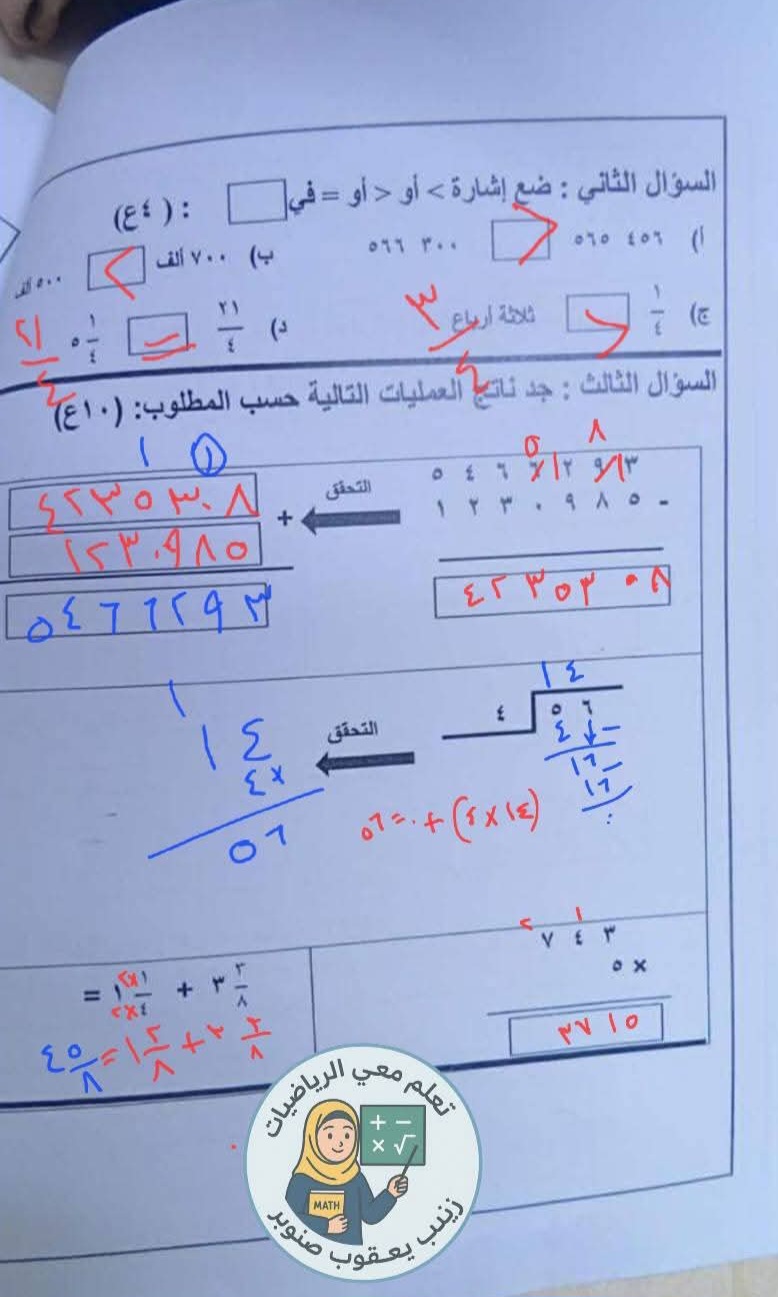 السؤال الثاني : ضع إشارة > أو < أو = في □ : (٤ع)
أ) ٥٦٥ ٤٥٦ > ٥٦٦ ٣٠٠
ب) ٧٠٠ ألف < ٥٠٠ ألف
ج) ١/٤ > ثلاثة أرباع ٣/٤
د) ٢١/٤ = ٥ ١/٤ ٢١/٤
السؤال الثالث : جد ناتج العمليات التالية حسب المطلوب: (١٠ع)
٥ ٨
٥ ٤ ٦ ٦ ٢ ٩ ٣
١ ٢ ٣ ٠ ٩ ٨ ٥ -
٤٢٣٥٣٠٨
التحقق
١ ١
٤٢٣٥٣٠٨
+
١٢٣٠٩٨٥
٥٤٦٦٢٩٣
١٤
٤ ٥٦
٤ ↓ -
١٦ -
١٦
٠
التحقق
١
١٤
٤ ×
٥٦
(١٤ × ٤) + ٠ = ٥٦
٢ ١
٧ ٤ ٣
٥ ×
٣٧١٥
٣ ٣/٨ + ١ ١×٢/٤×٢ =
٣ ٣/٨ + ١ ٢/٨ = ٤ ٥/٨
تعلم معي الرياضيات
MATH
+ − × √
زينب يعقوب صنوبر